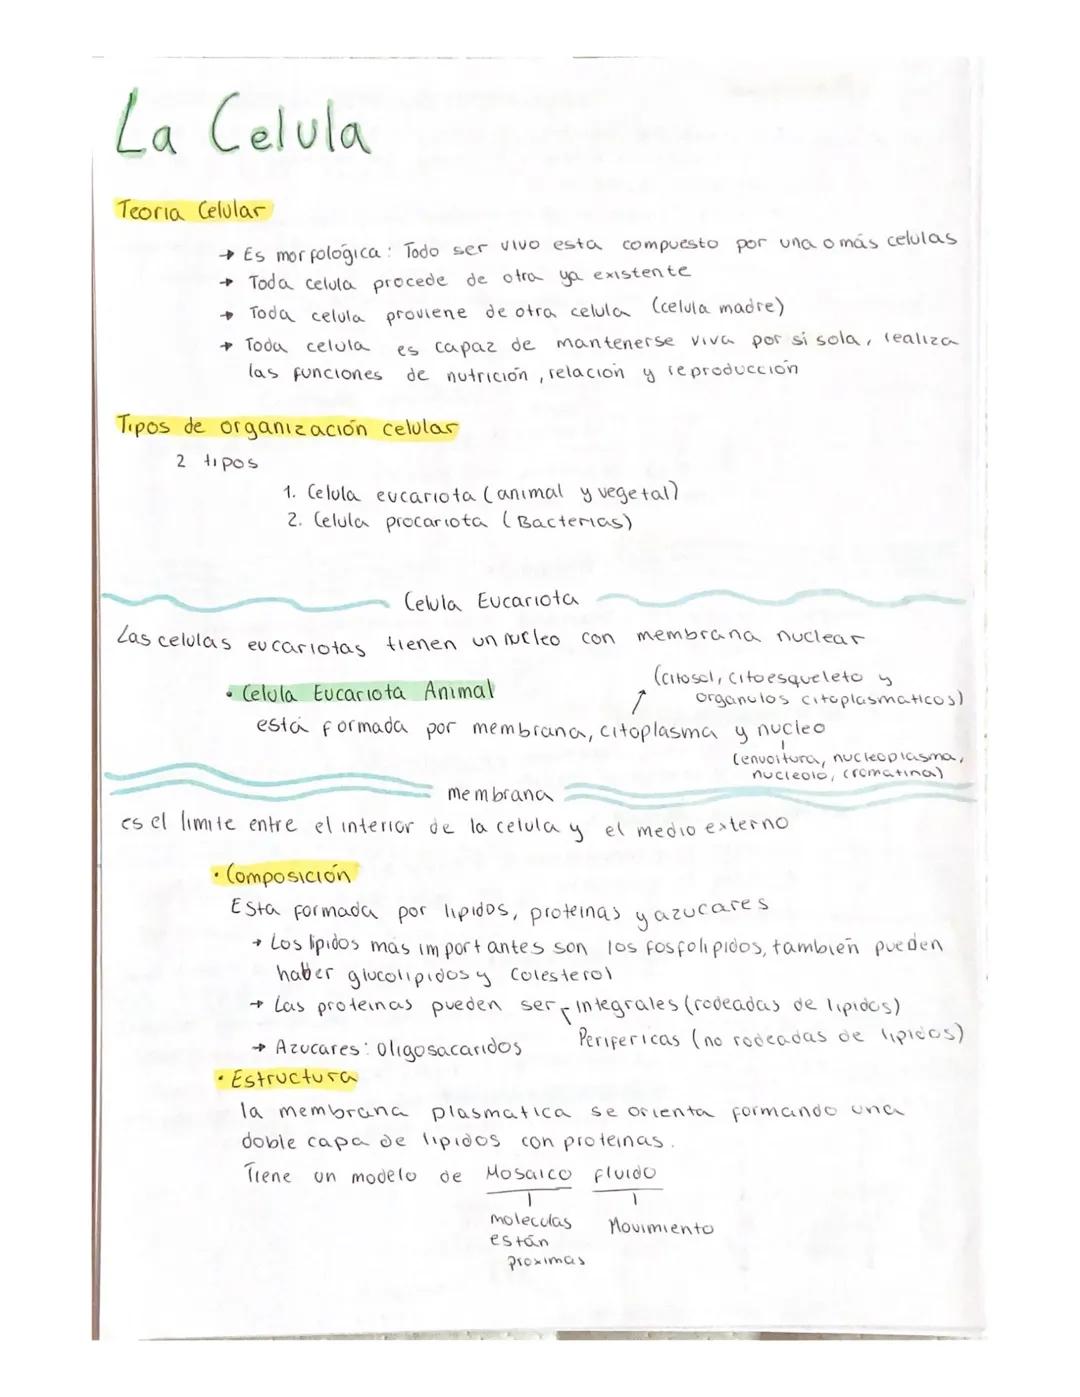 La Celula
Teoria Celular
→ Es morfológica: Todo ser vivo esta compuesto por una o más celulas
→ Toda celula procede de otra ya existente
→ Toda celula proviene de otra celula (celula madre)
→ Toda celula es capaz de mantenerse viva por si sola, realiza
las funciones de nutrición, relacion y reproducción
Tipos de organización celular
2 tipos
1. Celula eucariota (animal y vegetal)
2. Celula procariota (Bacterias)
Celula Eucariota
Las celulas eucariotas tienen un nucleo con membrana nuclear
(citosol, citoesqueleto y
organulos citoplasmaticos)
• Celula Eucariota Animal
está formada por membrana, citoplasma y nucleo
(envoltura, nucleoplasma,
nucleolo, cromatina)
membrana
es el limite entre el interior de la celula y el medio externo
• Composición
Esta formada por lipidos, proteinas y azucares
→ Los lipidos más importantes son los fosfolipidos, también pueden
haber glucolipidos y colesterol
→ Las proteinas pueden ser integrales (rodeadas de lipidos)
Perifericas (no rodeadas de lipidos)
→ Azucares: oligosacaridos
• Estructura
la membrana plasmatica se orienta formando una
doble capa de lipidos con proteinas.
Tiene un modelo de Mosaico fluido
moleculas
están
proximas
Movimiento